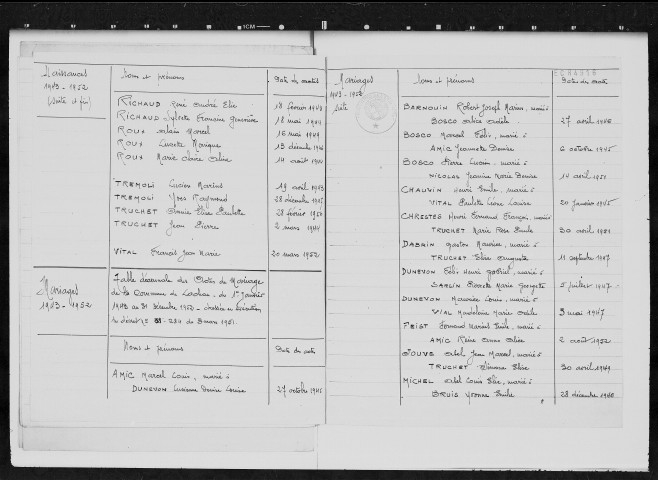 Naissances
1943 - 1952
(suite et fin)
Noms et prénoms
Date des actes
RICHAUD René André Elie
18 février 1943
RICHAUD Sylvette Germaine Geneviève
18 mai 1949
ROUX Alain Marcel
16 mai 1949
ROUX Lucette Monique
13 décembre 1946
ROUX Marie Claire Aline
14 août 1944
TREMOLI Lucien Marius
19 avril 1943
TREMOLI Yves Raymond
28 décembre
TRUCHET Annie Elise Paulette
28 février 1950
TRUCHET Jean Pierre
2 mars 1944
VITAL Francis Jean Marie
20 mars 1952
Mariages
1943 - 1952
Table décennale des Actes de Mariage
de la Commune de Lachau, du 1er Janvier
1943 au 31 décembre 1952 - dressée en exécution
du décret n° 51-284 du 3 mars 1951.
Noms et prénoms
Date des actes
AMIC Marcel Louis, marié à
DUNEVON Lucienne Denise Louise
27 octobre 1945
Mariages
1943 - 1952
suite
Noms et prénoms
Date des actes
BARNOUIN Robert Joseph Marius, marié à
BOSCO Odile
27 avril 1946
BOSCO Marcel Félix, marié à
AMIC Jeannette Denise
6 octobre 1945
BOSCO Pierre Lucien, marié à
NICOLAS Jeanine Marie Denise
14 avril 1951
CHAUVIN Henri Emile, marié à
VITAL Paulette Louise
20 janvier 1945
CHRESTES Henri Fernand François, marié à
TRUCHET Marie Rose Paule
30 avril 1951
DABAIN Gaston Maurice, marié à
TRUCHET Elise Augusta
11 septembre 1947
DUNEVON Félix Henri Gabriel, marié à
SARLIN Rosette Marie Georgette
5 juillet 1947
DUNEVON Maurice Louis, marié à
VIAL Madeleine Marie Odile
3 mai 1947
FEIST Fernand Marius Emile, marié à
AMIC Reine Anna Alice
2 août 1952
JOUVE Abel Jean Marcel, marié à
TRUCHET Simone Elise
30 avril 1949
MICHEL Abel Louis Elie, marié à
BRUIS Yvonne Emilie
28 décembre 1946